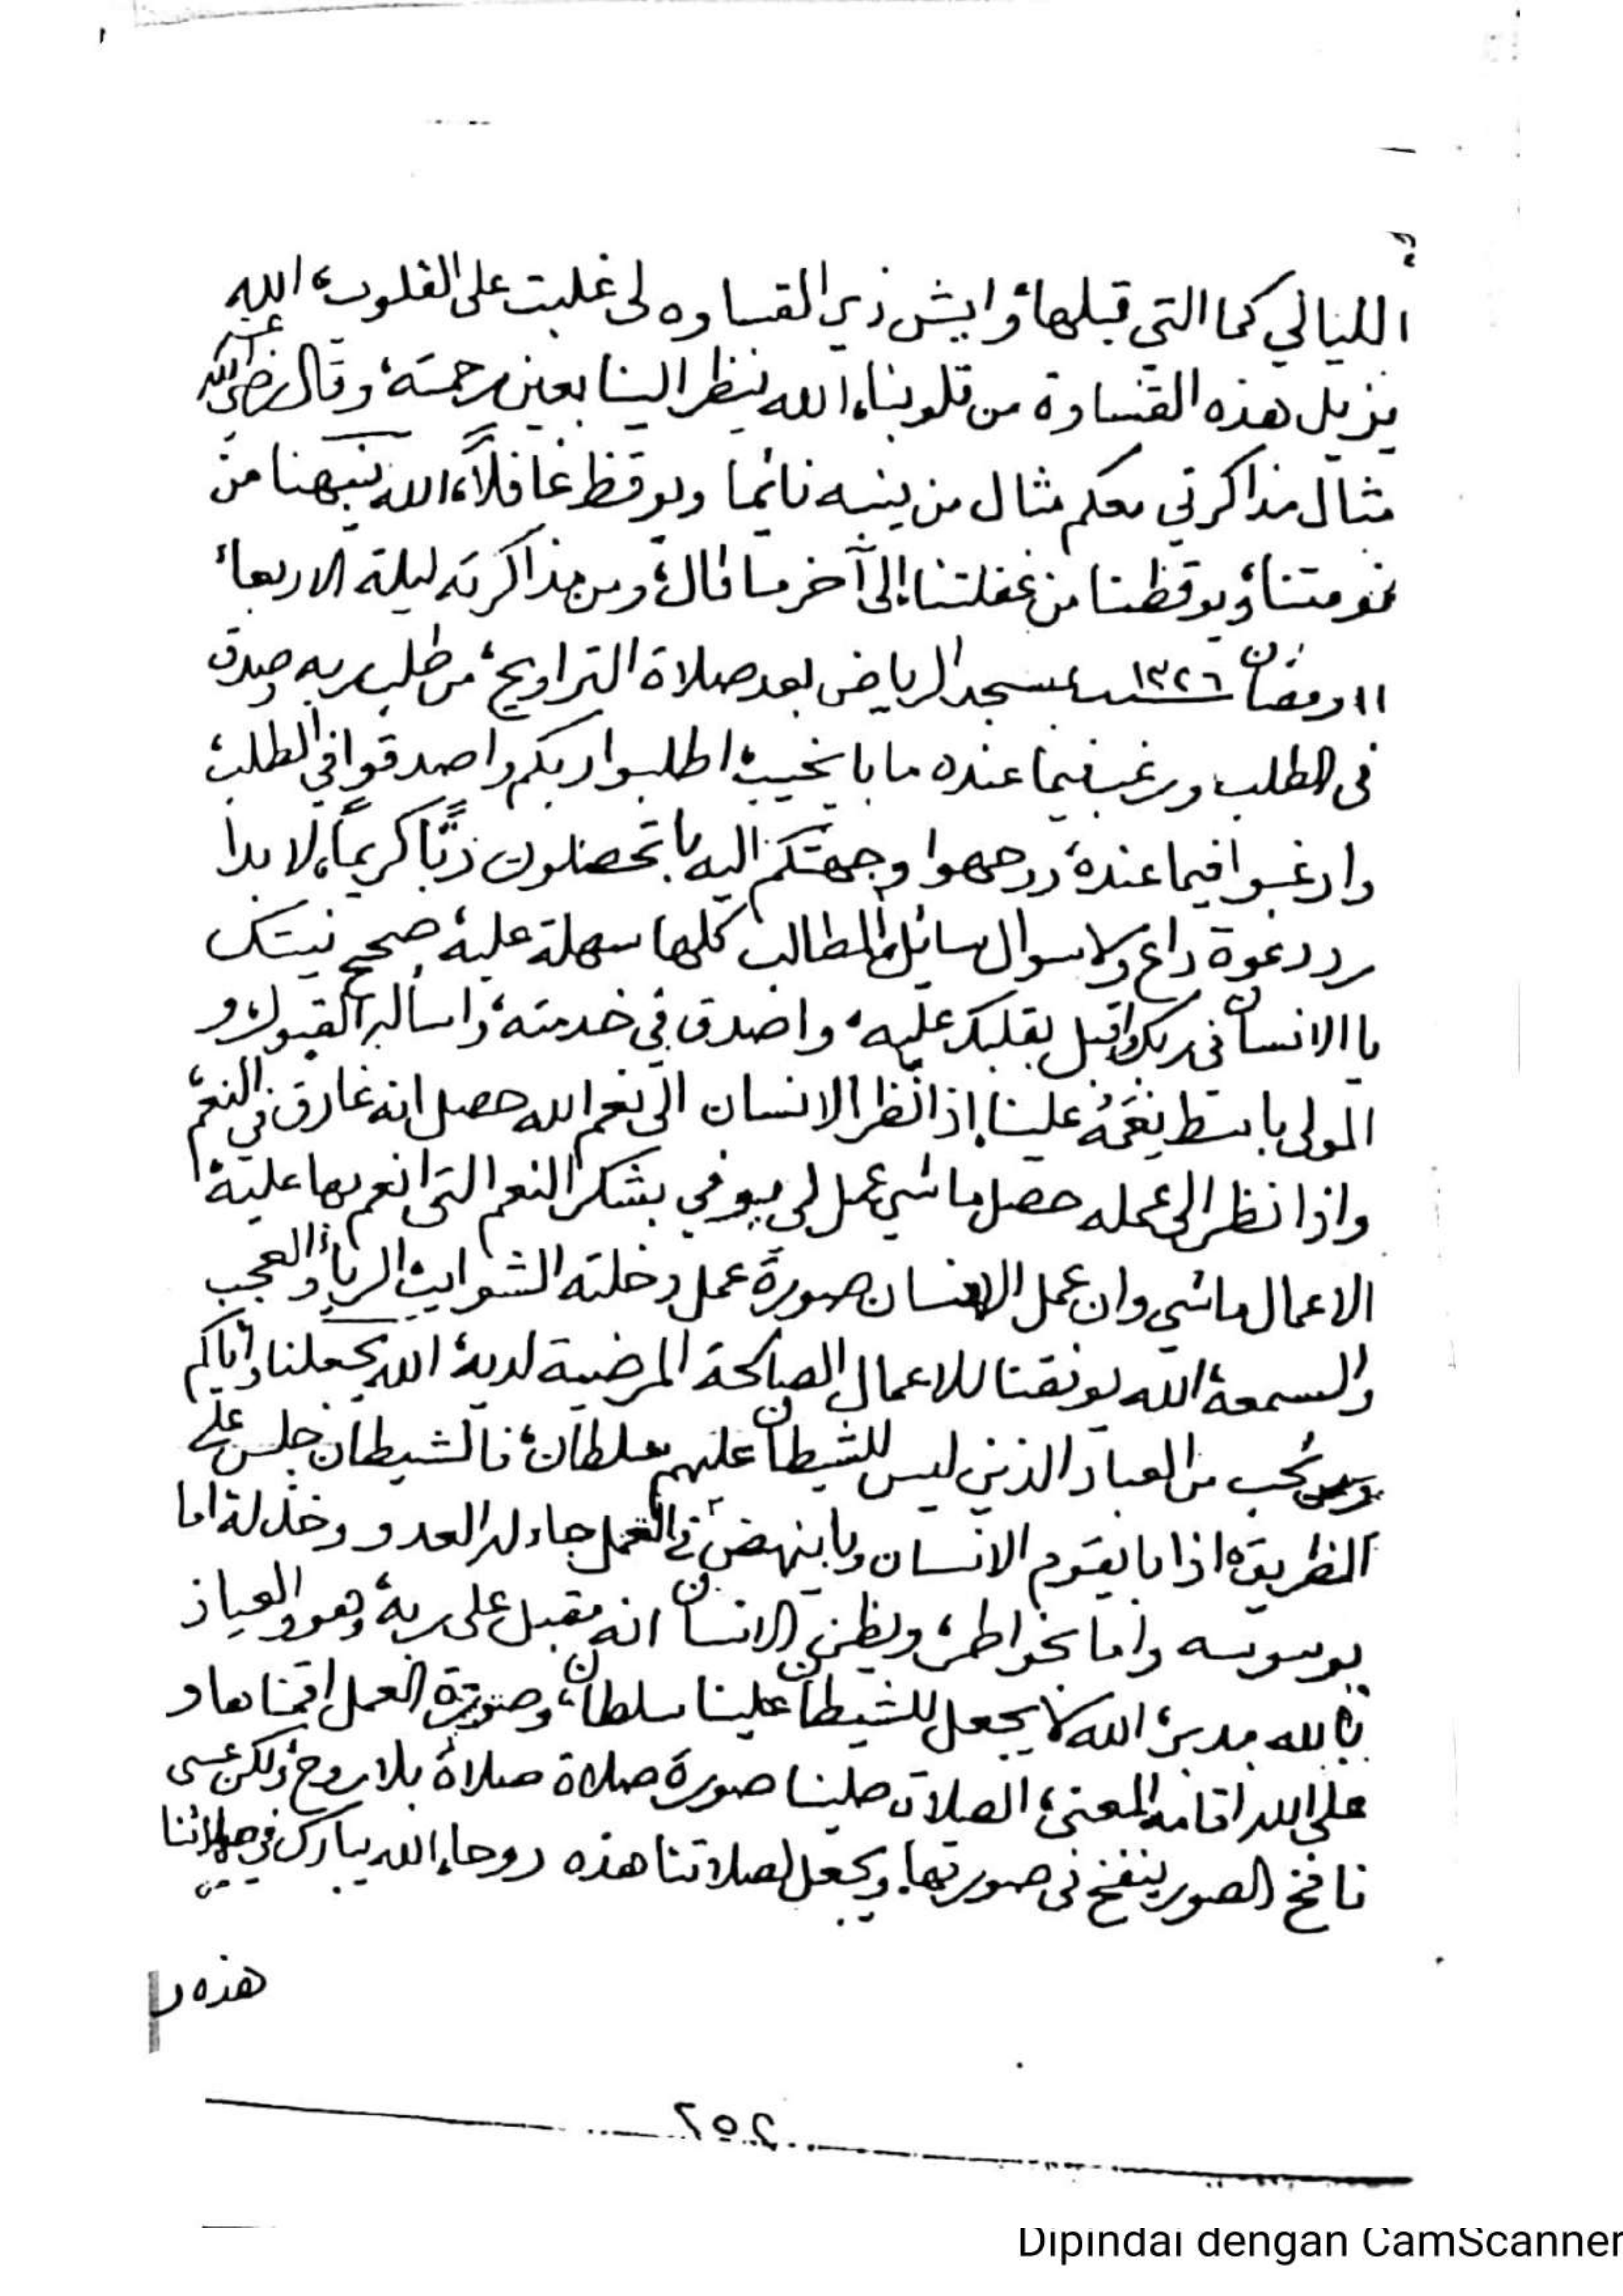 الليالي كما التي قبلها، وايش ذي القساوه لى غلبت على القلوب، الله
يزيل هذه القساوة من قلوبنا، الله ينظر الينا بعين رحمته، وقال رضي الله عنه
مثال مذاكرتي معكم مثال من ينبه نائما ويوقظ غافلاً، الله ينبهنا من
نومتنا، ويوقظنا من غفلتنا، إلى آخر ما قال، ومن مذاكرته ليلة الاربعاء
١١ رمضان ١٣٢٦ بمسجد الرياض بعد صلاة التراويح، من طلب ربه وصدق
في الطلب ورغب فيما عنده ما با يخيب، اطلبوا ربكم واصدقوا في الطلب،
وارغبوا فيما عنده، ووجهوا وجهتكم اليه با تحصلون ربًّا كريماً، لا بدا
رد دعوة داع ولا سوال سائل، والمطالب كلها سهلة عليه، صحح نيتك
يا الانسان في ربك واقبل بقلبك عليه، واصدق في خدمته، واسأله القبول، و
المولى باسط نِعَمُه علينا، إذا نظر الانسان الى نعم الله حصل انه غارق في النعم،
واذا نظر الى عمله حصل ما شي عمل لى يوفي بشكر النعم التي انعم بها عليه،
الاعمال ماشي وان عمل الانسان صورة عمل دخلته الشوايب، الرياء والعجب
والسمعة، الله يوفقنا للاعمال الصالحة المرضية لديه، الله يجعلنا واياكم
ومن نحب من العباد الذين ليس للشيطان عليهم سلطان، فالشيطان جلس على
الطريق، اذا با يقوم الانسان وبا ينهض في العمل جاء له العدو وخذله، اما
بوسوسه واما بخواطر، ويظن الانسان انه مقبل على ربه، وهو والعياذ
بالله مدبر، الله لا يجعل للشيطان علينا سلطان، وصورة العمل اقمناها و
على الله اقامة المعنى، الصلاة صلينا صورة صلاة صلاة بلا روح، ولكن عسى
نافخ الصور ينفخ في صورتها، ويجعل لصلاتنا هذه روحا، الله يبارك في صلاتنا
هذه
٢٥٢
Dipindai dengan CamScanner